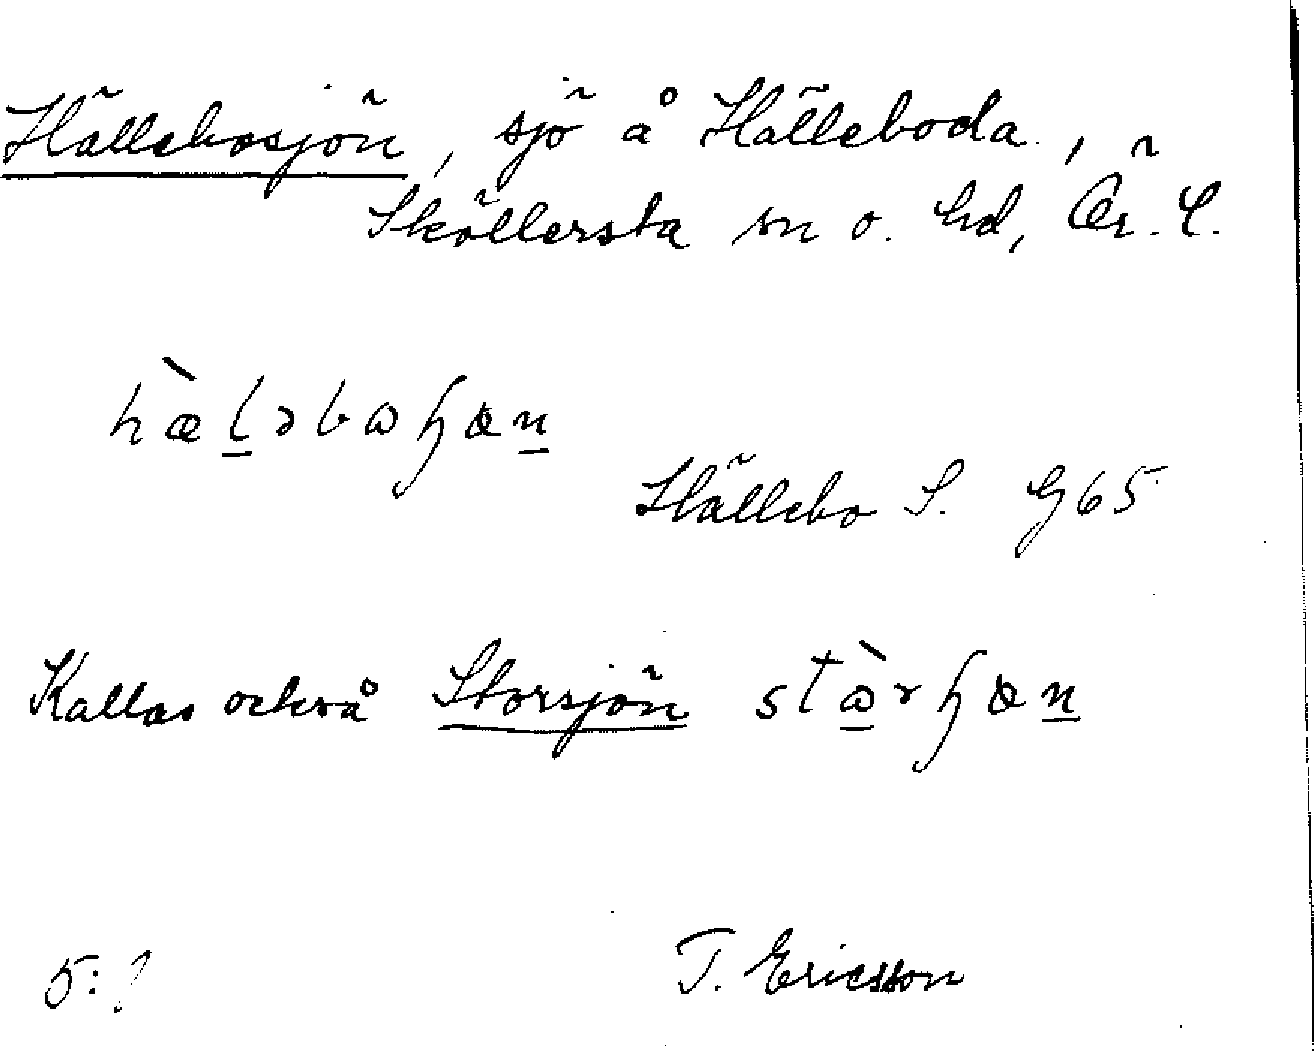 Hällebosjön, sjö å Hälleboda,
Sköllersta sn o. hd, Ör. L.
hæ̀l̲əbωɧøn̲
Hällebo S. G65
Kallas också Storsjön stὼ̲rɧøn̲
5: ?
T. Ericsson